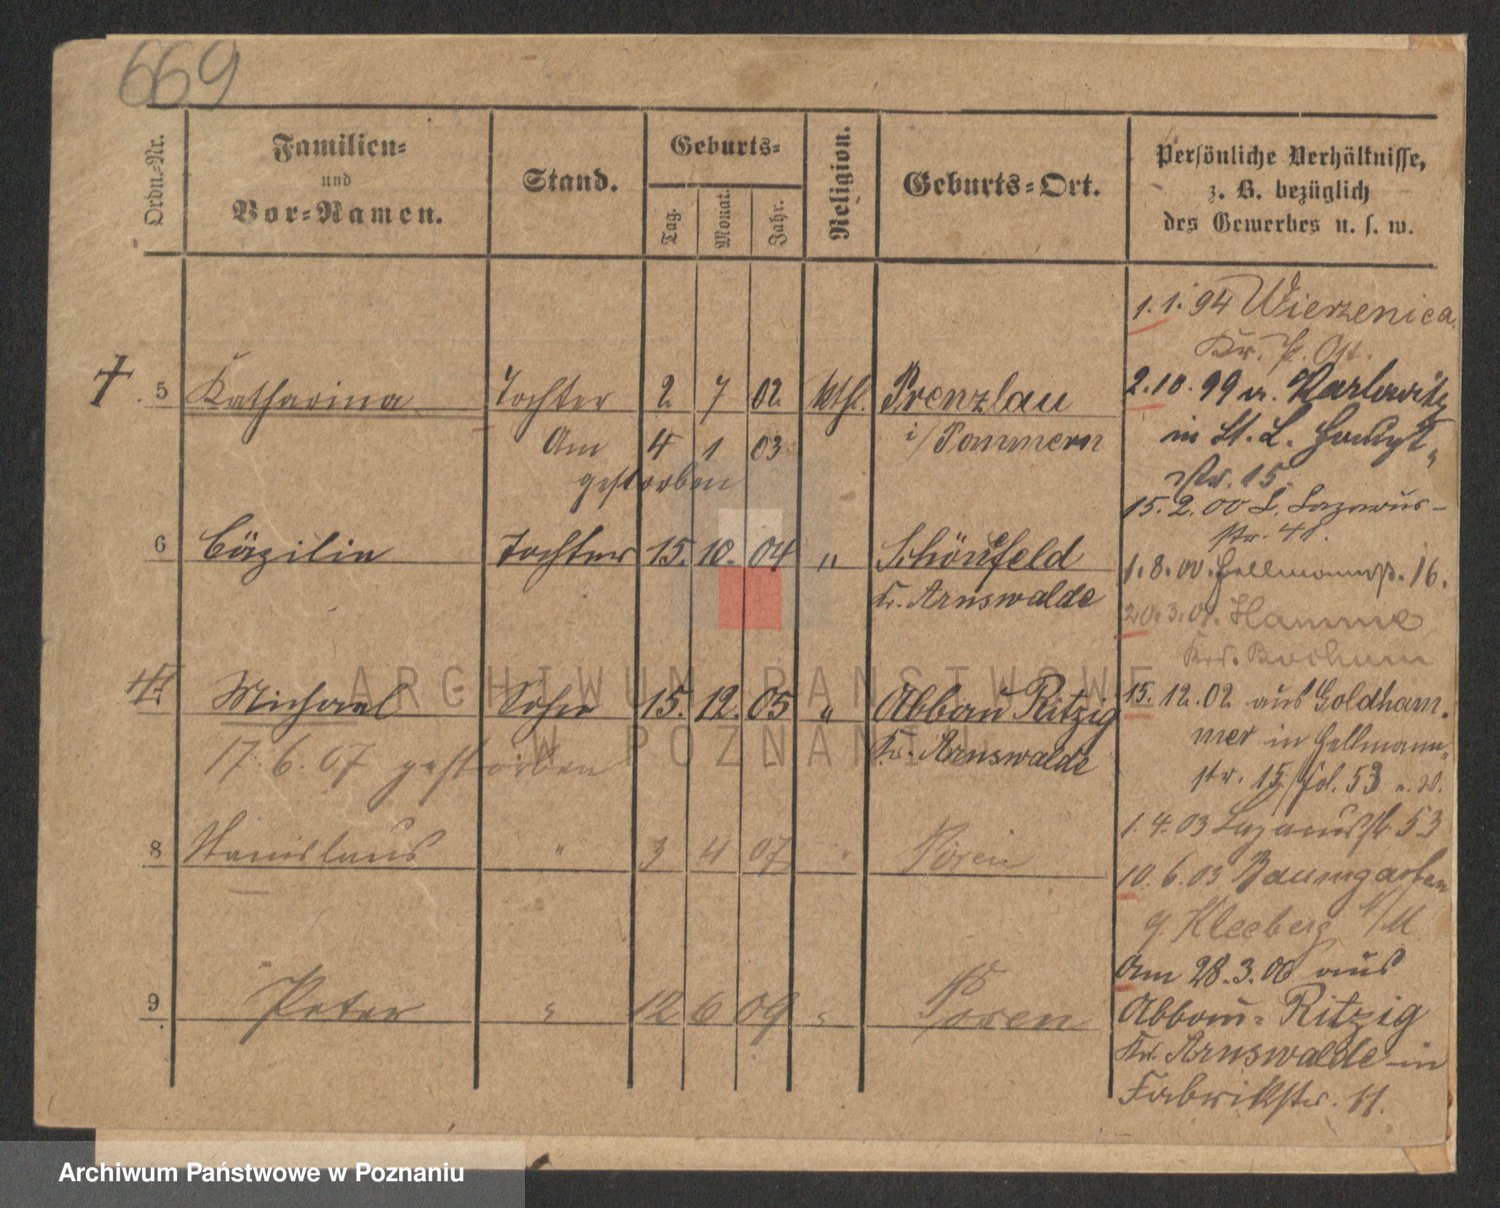 669
Ordn.-Nr.
Familien-
und
Vor-Namen.
Stand.
Geburts-
Tag.
Monat.
Jahr.
Religion.
Geburts-Ort.
Persönliche Verhältnisse,
z. B. bezüglich
des Gewerbes u. s. w.
5 Katharina Tochter 2. 7 02. kthl. Prenzlau
i/Pommern
Am 4 1 03
gestorben
6 Cäzilie Tochter 15. 10. 04 " Schönfeld
Kr. Arnswalde
7 Michael Sohn 15. 12. 05 " Abbau Ritzig
Kr. Arnswalde
17. 6. 07 gestorben
8 Stanislaus " 3 4 07 " Posen
9 Peter " 12 6 09 " Posen
1. 1. 94 Wierzenica
Kr. P. Ost.
2. 10. 99 in
in St. L. Haupt-
str. 15.
15. 2. 00 L. Lazarus-
str. 48.
1. 8. 00. Hellmannstr. 16.
20. 3. 01. Hamme
Krs. Bochum
15. 12. 02 aus Goldham-
mer in Hellmann-
str. 15/fol. 53
1. 4. 03 Lazarusstr 53
10. 6. 03 Baumgarten
Kleeberg /M
Am 28. 3. 06 aus
Abbau-Ritzig
Kr. Arnswalde in
Fabrikstr. 11.
ARCHIWUM PAŃSTWOWE
W POZNANIU
Archiwum Państwowe w Poznaniu